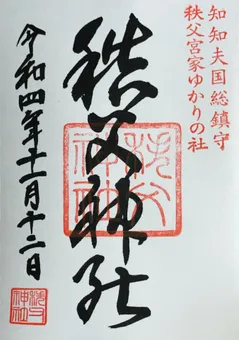 知知夫国総鎮守
秩父宮家ゆかりの社
秩父神社
秩父神社
令和四年十二月十二日
秩父神社